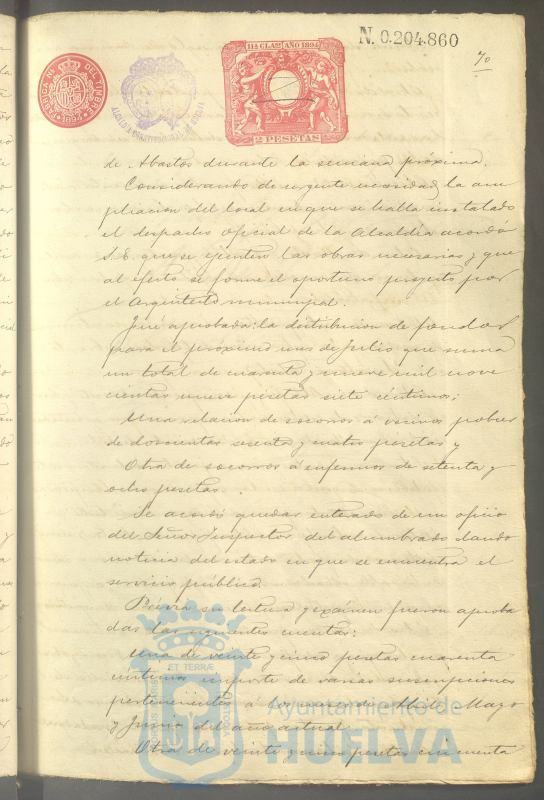 N. 0.204.860
11ª CLASE AÑO 1894
70
FABRICA N. DEL TIMBRE
1894
ALCALDIA CONSTITUCIONAL DE HUELVA
2 PESETAS
de Abastos durante la semana próxima.
Considerando de urgente necesidad la am
pliacion del local en que se halla instalado
el despacho oficial de la Alcaldía acordó
S.E. que se ejecuten las obras necesarias y que
al efecto se forme el oportuno proyecto por
el Arquitecto municipal.
Fué aprobada: la distribucion de fondos
para el próximo mes de Julio que suma
un total de cuarenta y nueve mil nove
cientas nueve pesetas siete céntimos;
Una relacion de socorros á vecinos pobres
de doscientas sesenta y cuatro pesetas y
Otra de socorros á enfermos de setenta y
ocho pesetas.
Se acordó quedar enterado de un oficio
del Señor Inspector del alumbrado dando
noticia del estado en que se encuentra el
servicio público.
Prévia su lectura y exámen fueron aproba
das las siguientes cuentas:
Una de veinte y cinco pesetas cuarenta
céntimos importe de varias suscripciones
pertenecientes á los meses de Abril Mayo
y Junio del año actual.
Otra de veinte y cinco pesetas cincuenta
ET TERRE
Ayuntamiento de
HUELVA